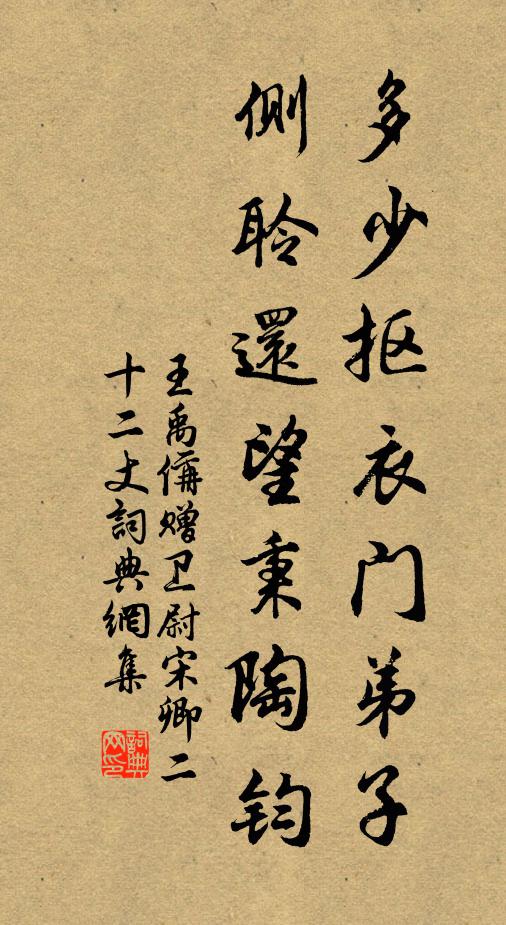 多少抠衣门弟子
側聆還望秉陶钧
王禹偁赠卫尉宋卿二
十二丈詞典網集
詞典
网印